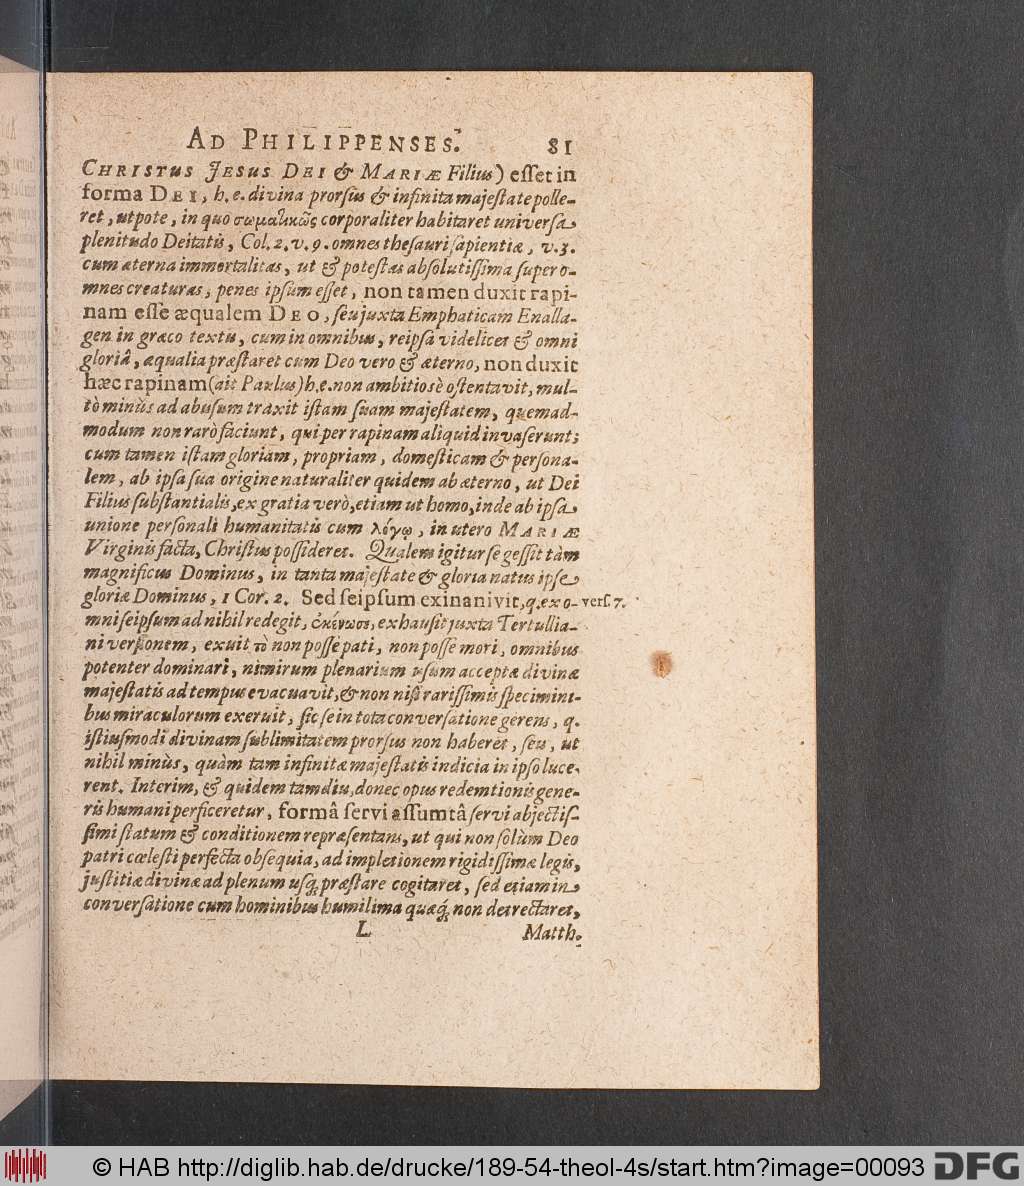 AD PHILIPPENSES. 81
CHRISTUS JESUS DEI & MARIÆ Filius) esset in
forma DEI, h. e. divina prorsus & infinita majestate polle-
ret, utpote, in quo σωματικῶς corporaliter habitaret universa
plenitudo Deitatis, Col. 2. v. 9. omnes thesauri sapientiæ, v. 3.
cum æterna immortalitas, ut & potestas absolutissima super o-
mnes creaturas, penes ipsum esset, non tamen duxit rapi-
nam esse æqualem DEO, seu juxta Emphaticam Enalla-
gen in græco textu, cum in omnibus, reipsa videlicet & omni
gloriâ, æqualia præstaret cum Deo vero & æterno, non duxit
hæc rapinam (ait Paulus) h. e. non ambitiosè ostentavit, mul-
tò minùs ad abusum traxit istam suam majestatem, quemad-
modum non rarò faciunt, qui per rapinam aliquid invaserunt;
cum tamen istam gloriam, propriam, domesticam & persona-
lem, ab ipsa sua origine naturaliter quidem ab æterno, ut Dei
Filius substantialis, ex gratia verò, etiam ut homo, inde ab ipsa
unione personali humanitatis cum λόγῳ, in utero MARIÆ
Virginis facta, Christus possideret. Qualem igitur se gessit tàm
magnificus Dominus, in tanta majestate & gloria natus ipse
gloriæ Dominus, 1 Cor. 2. Sed seipsum exinanivit, q. ex o- vers. 7.
mni seipsum ad nihil redegit, ἐκένωσε, exhausit juxta Tertullia-
ni versionem, exuit τὸ non posse pati, non posse mori, omnibus
potenter dominari, nimirum plenarium usum acceptæ divinæ
majestatis ad tempus evacuavit, & non nisi rarissimis specimini-
bus miraculorum exeruit, sic se in tota conversatione gerens, q.
istiusmodi divinam sublimitatem prorsus non haberet, seu, ut
nihil minùs, quàm tam infinitæ majestatis indicia in ipso luce-
rent. Interim, & quidem tamdiu, donec opus redemtionis gene-
ris humani perficeretur, formâ servi assumtâ servi abjectis-
simi statum & conditionem repræsentans, ut qui non solùm Deo
patri cœlesti perfecta obsequia, ad impletionem rigidissimæ legis,
justitiæ divinæ ad plenum usq́; præstare cogitaret, sed etiam in
conversatione cum hominibus humilima quæq́; non detrectaret,
L Matth.
© HAB http://diglib.hab.de/drucke/189-54-theol-4s/start.htm?image=00093 DFG